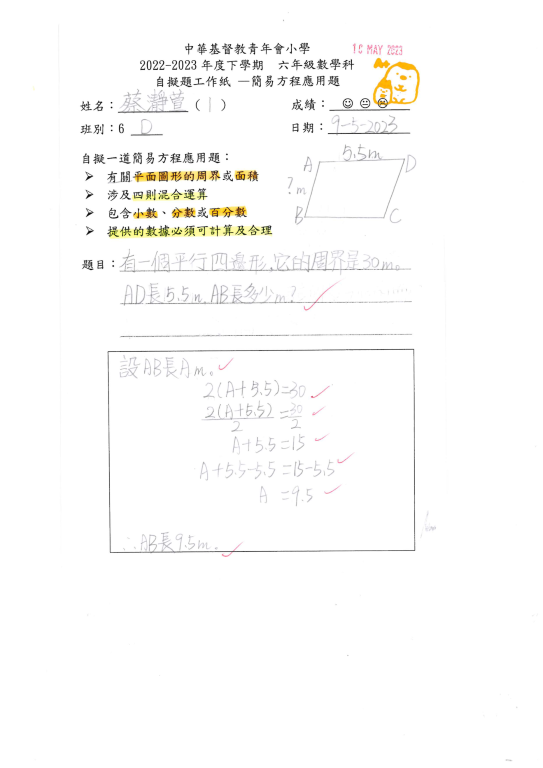 中華基督教青年會小學
10 MAY 2023
2022-2023 年度下學期 六年級數學科
自擬題工作紙 —簡易方程應用題
姓名：蔡瀞萱（1）
成績：
班別：6 D
日期：9-5-2023
自擬一道簡易方程應用題：
➢ 有關平面圖形的周界或面積
➢ 涉及四則混合運算
➢ 包含小數、分數或百分數
➢ 提供的數據必須可計算及合理
5.5m
A
D
?m
B
C
題目：有一個平行四邊形,它的周界是30m。
AD長5.5m,AB長多少m?
設AB長Am。
2(A+5.5)=30
2(A+5.5)/2=30/2
A+5.5=15
A+5.5-5.5=15-5.5
A =9.5
∴AB長9.5m。